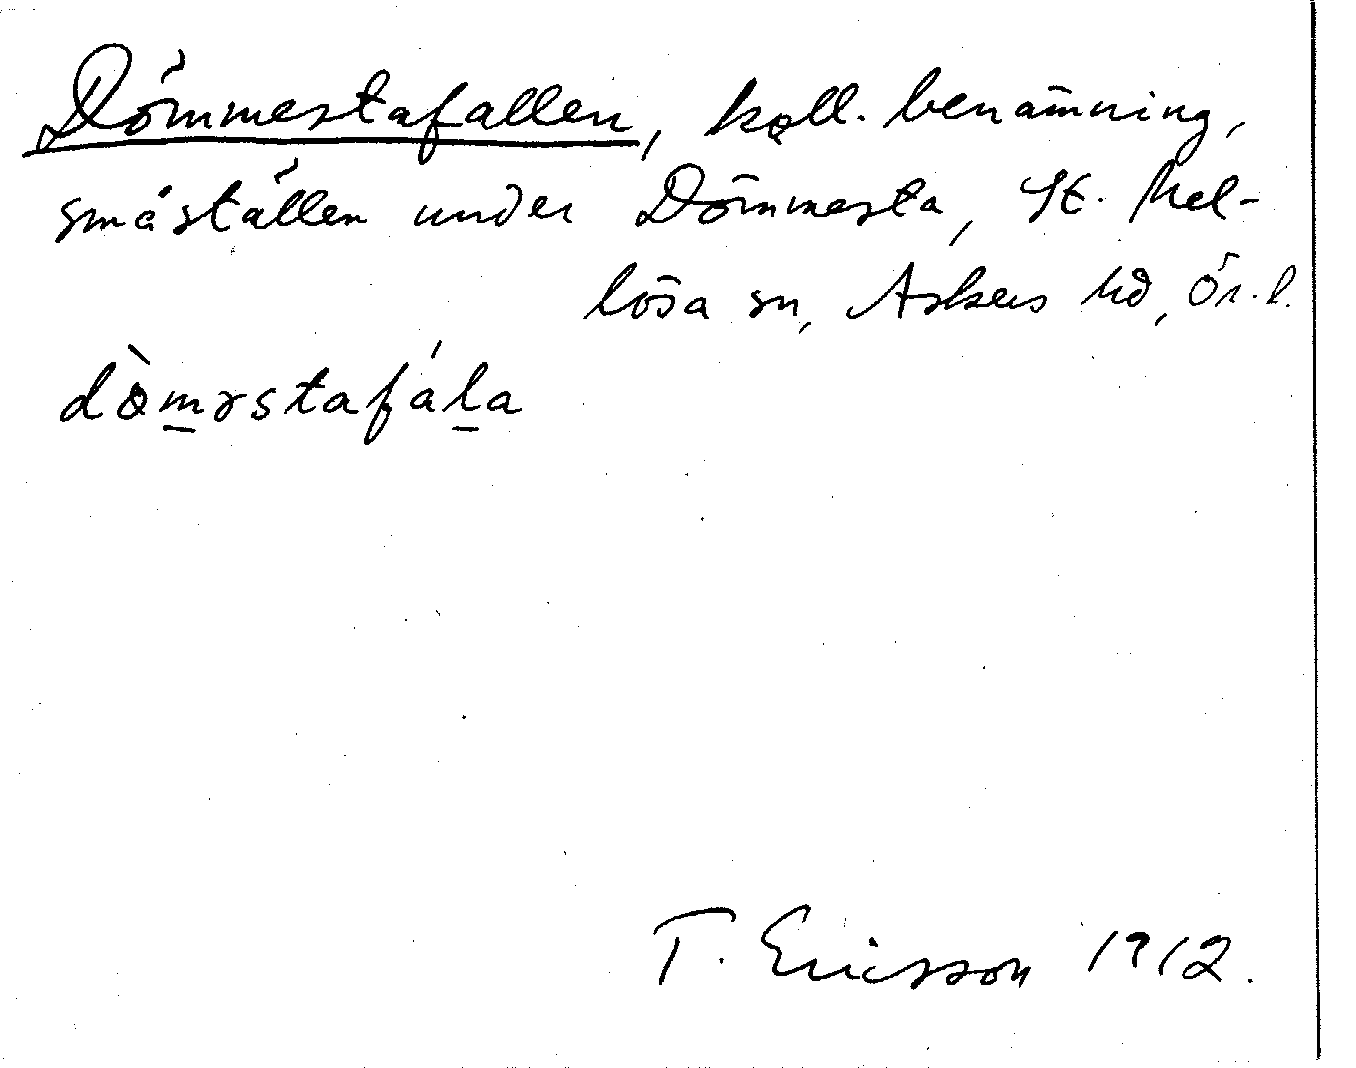 Dömmestafallen, koll. benämning,
småställen under Dömmesta, St. Mel-
lösa sn, Askers hd, Ör. l.
dø̀m̲ɤstafáḻa
T. Ericsson 1912.